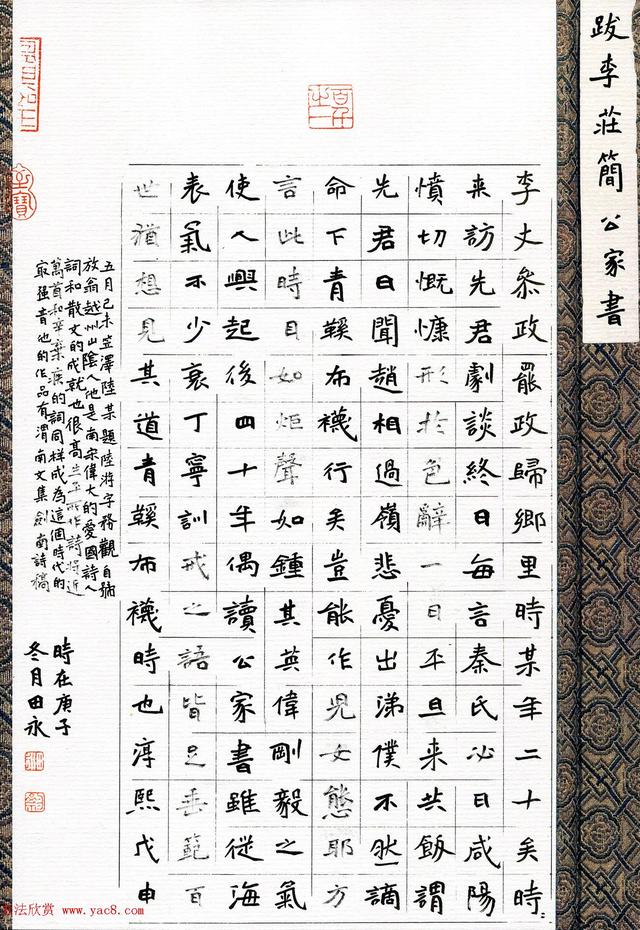 跋李莊簡公家書
李丈叅政罷政歸鄉里時某年二十矣時
来訪先君劇談終日每言秦氏必曰咸陽
憤切慨慷形於色辭一日平旦来共飯謂
先君曰聞趙相過嶺悲憂出涕僕不然謫
命下青鞵布襪行矣豈能作兒女態耶方
言此時目如炬聲如鍾其英偉剛毅之氣
使人興起後四十年偶讀公家書雖從海
表氣不少衰丁寧訓戒之語皆足垂範百
世猶想見其道青鞵布襪時也淳熙戊申
五月己未笠澤陸某題陸游字務觀自號
放翁越州山陰人他是南宋偉大的愛國詩人
詞和散文的成就也很高生平所作詩將近
萬首和辛棄疾的詞同样成為這個時代的
最强音他的作品有渭南文集劍南詩稿
時在庚子
冬月田永
法欣赏 www.yac8.com